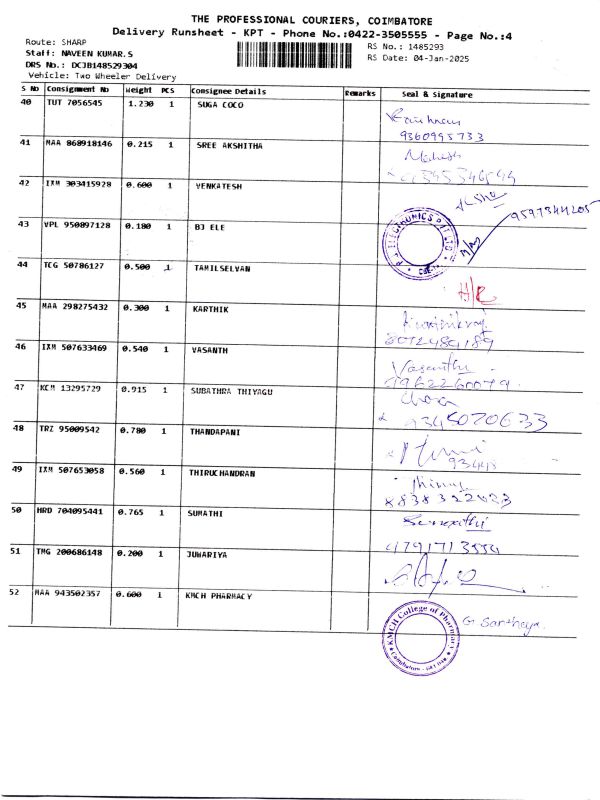 THE PROFESSIONAL COURIERS, COIMBATORE
Delivery Runsheet - KPT - Phone No.:0422-3505555 - Page No.:4
Route: SHARP
RS No.: 1485293
Staff: NAVEEN KUMAR.S
RS Date: 04-Jan-2025
DRS No.: DCJB148529304
Vehicle: Two Wheeler Delivery
S No Consignment No Weight PCS Consignee Details Remarks Seal & Signature
40 TUT 7056545 1.230 1 SUGA COCO
9360995733
41 MAA 868918146 0.215 1 SREE AKSHITHA
Mahesh
42 IXM 303415928 0.600 1 VENKATESH
9597344205
43 VPL 950897128 0.180 1 BJ ELE
44 TCG 50786127 0.500 1 TAMILSELVAN
45 MAA 298275432 0.300 1 KARTHIK
46 IXM 507633469 0.540 1 VASANTH
Vasantha
9962260079
47 KCM 13295729 0.915 1 SUBATHRA THIYAGU
9345020633
48 TRZ 95009542 0.780 1 THANDAPANI
49 IXM 507653058 0.560 1 THIRUCHANDRAN
50 HRD 704095441 0.765 1 SUMATHI
51 TMG 200686148 0.200 1 JUWARIYA
52 MAA 943502357 0.600 1 KMCH PHARMACY
KMCH College of Pharmacy
G. Santhaya